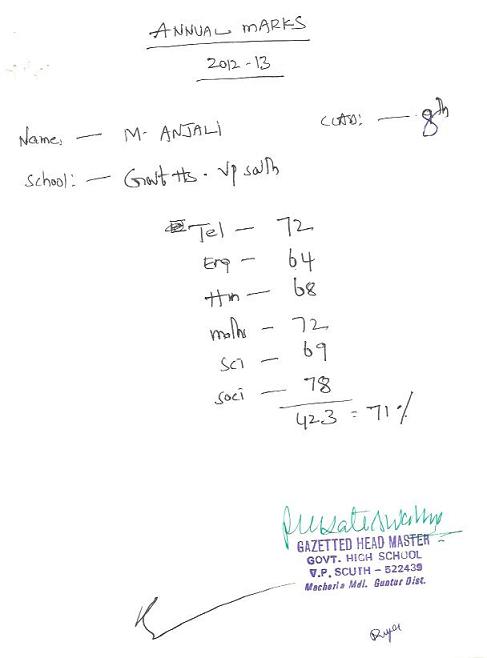 ANNUAL MARKS
2012-13
Name, — M. ANJALI
CLASS: — 8th
School: — Govt Hs. Vp South
Tel — 72
Eng — 64
Hin — 68
maths — 72
sci — 69
soci — 78
423 = 71%
GAZETTED HEAD MASTER
GOVT. HIGH SCHOOL
V.P. SOUTH - 522439
Macherla Mdl. Guntur Dist.